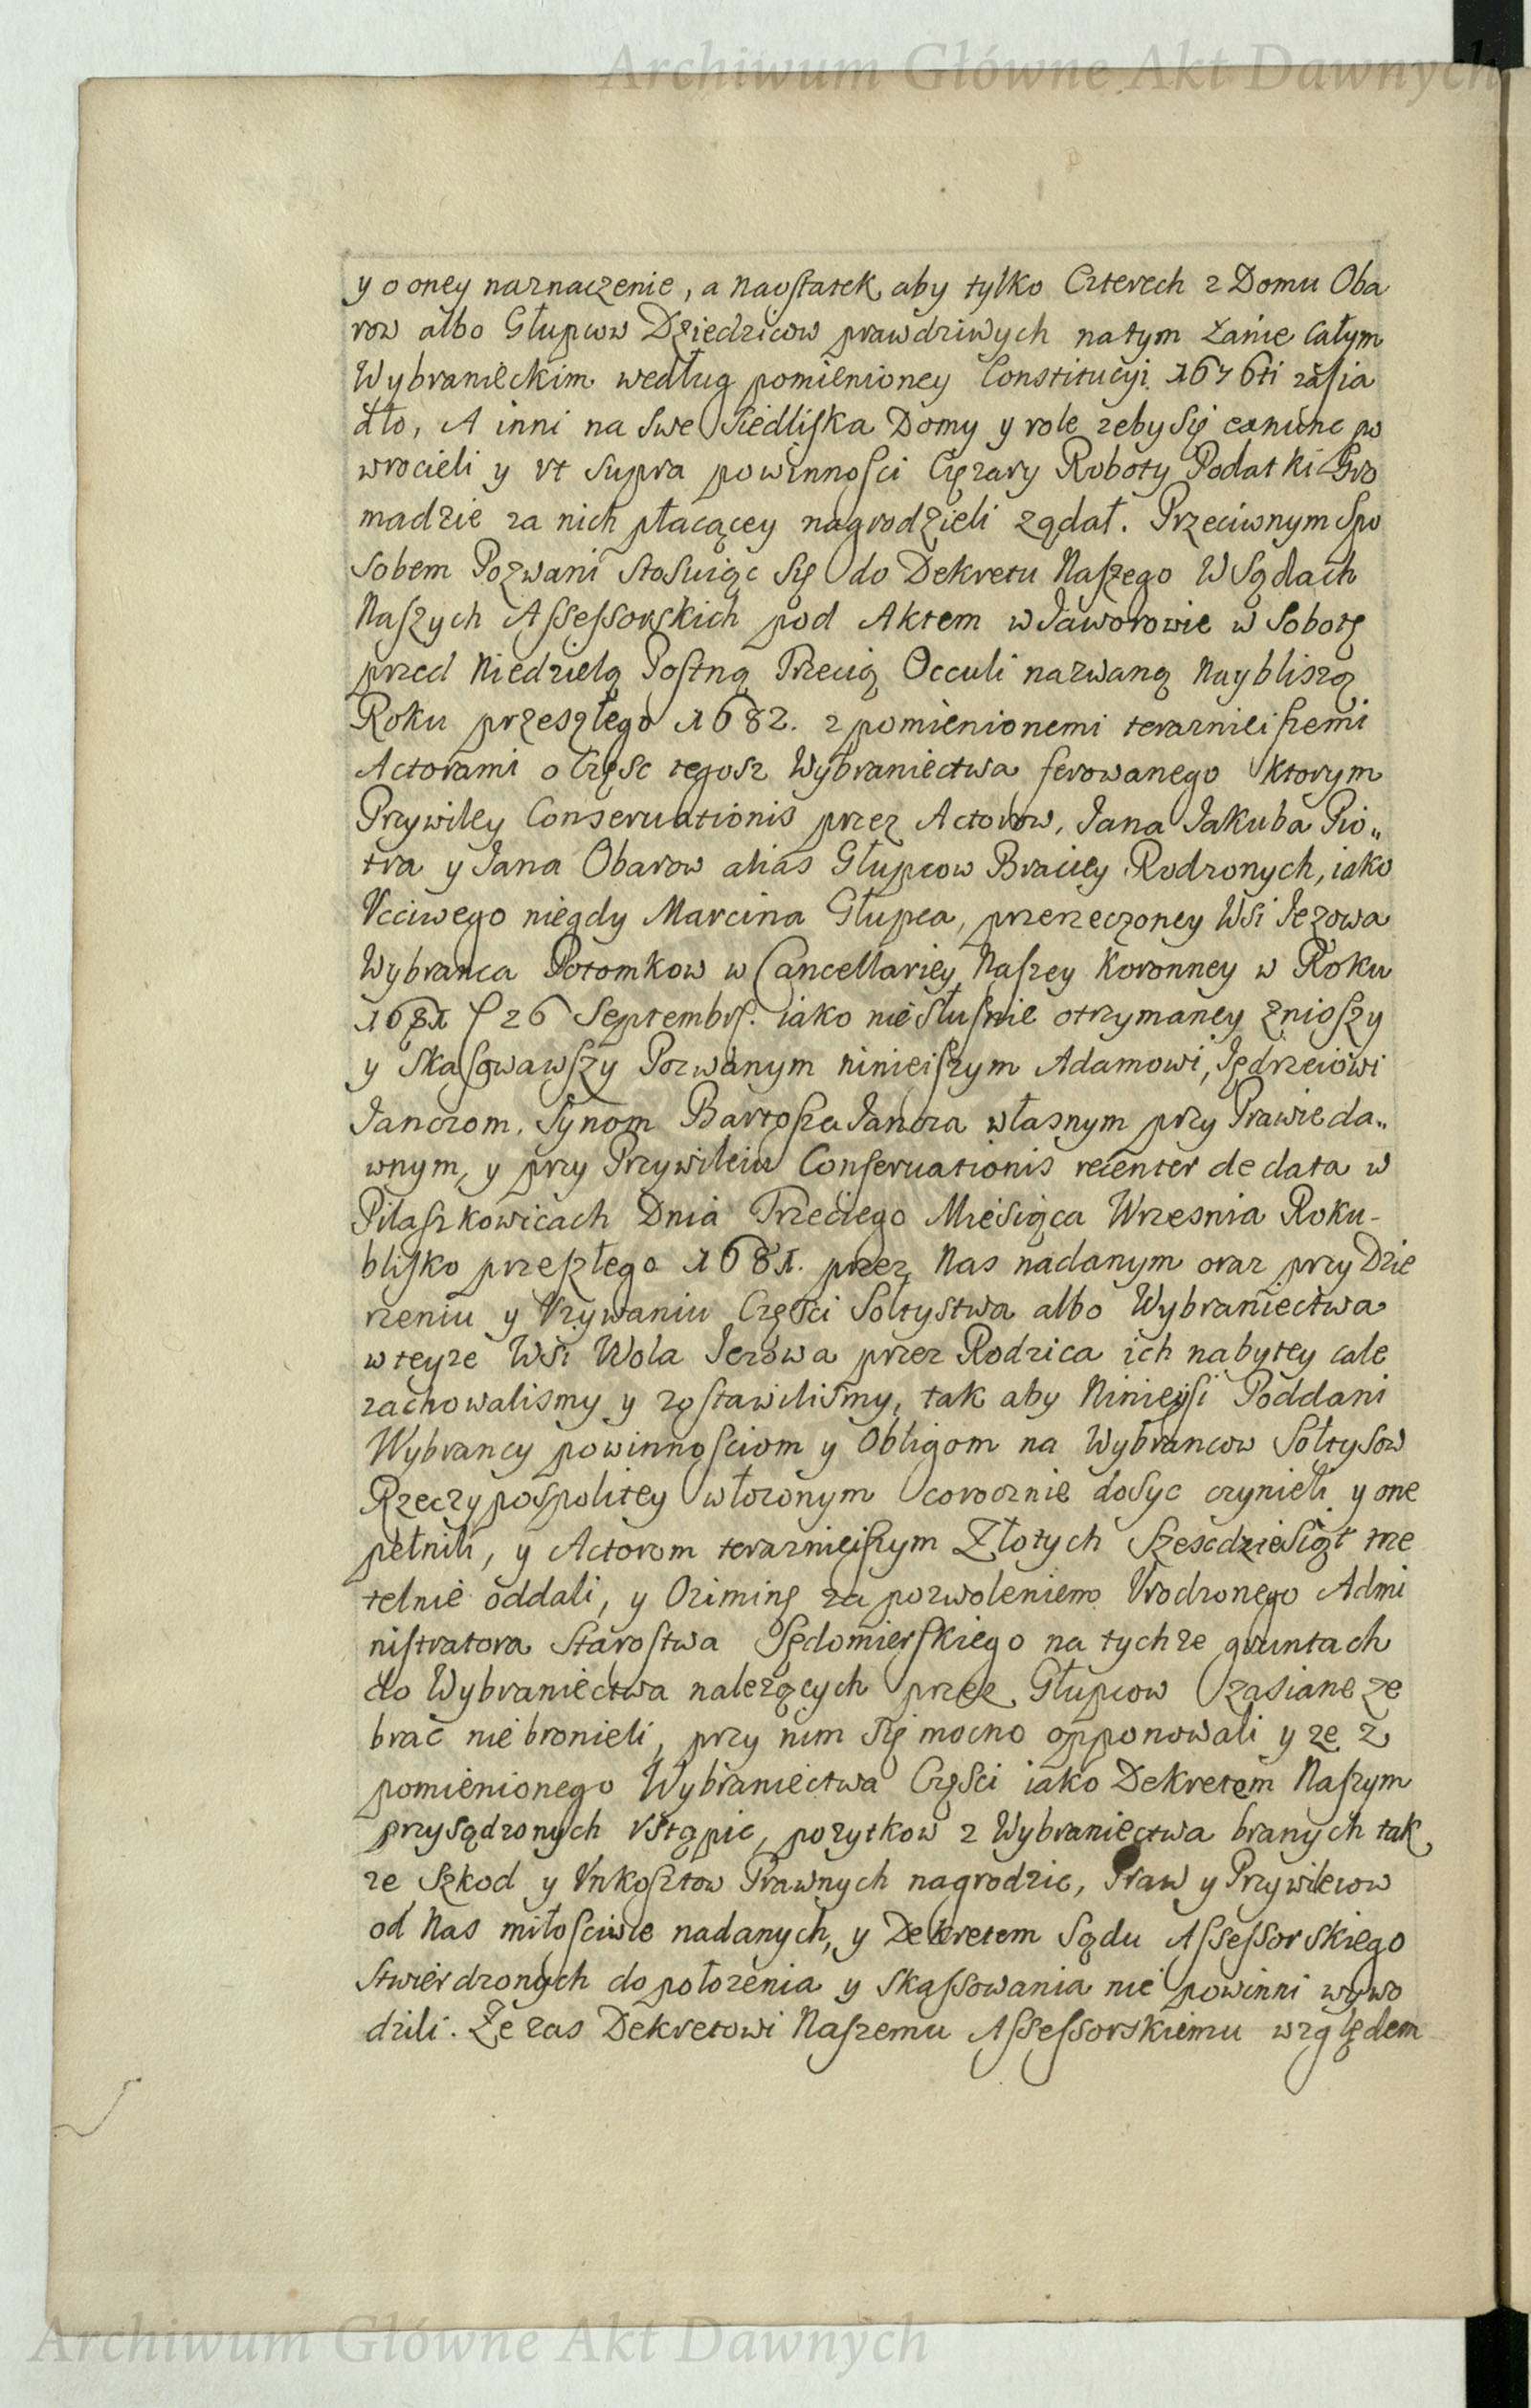 Archiwum Główne Akt Dawnych
y o oney naznaczenie, a naostatek aby tylko Czterech z Domu Oba
row albo Głupcow Dziedzicow prawdziwych na tym Łanie całym
Wybranieckim według pomienioney Constitucyi 1676ti zasia
dło, A inni na swe Siedliska Domy y role zeby się ex nunc po
wrocieli y vt supra powinnosci Cięzary Roboty Podatki Gro
madzie za nich płacącey nagrodzieli ządał. Przeciwnym Spo
sobem Pozwani stosuiąc się do Dekretu Naszego W Sądach
Naszych Assessorskich pod Aktem w Jaworowie w Sobotę
przed Niedzielą Postną Trzecią Occuli nazwaną Naybliszą
Roku przeszłego 1682. z pomienionemi teraznieiszemi
Actorami o Częsc tegosz Wybraniectwa ferowanego ktorym
Przywiley Conseruationis przez Actorow, Jana Jakuba Pio„
tra y Jana Obarow alias Głupcow Braciey Rodzonych, iako
Vcciwego niegdy Marcina Głupca, przerzeczoney Wsi Jezowa
Wybranca Potomkow w Cancellariey Naszey Koronney w Roku
1681 26 Septembr. iako niesłusznie otrzymaney zniosszy
y skasowawszy Pozwanym ninieiszym Adamowi, Jędrzeiowi
Janczom, Synom Bartosza Jancza własnym przy Prawie da„
wnym, y przy Przywileiu Conseruationis recenter de data w
Pilaszkowicach Dnia Trzeciego Miesiąca Wrzesnia Roku-
blisko przeszłego 1681. przez Nas nadanym oraz przy Dzie
rzeniu y Vzywaniu Częsci Sołtystwa albo Wybraniectwa
w teyze Wsi Wola Jezowa przez Rodzica ich nabytey cale
zachowalismy y zostawilismy, tak aby Ninieysi Poddani
Wybrancy powinnosciom y Obligom na Wybrancow Sołtysow
Rzeczypospolitey włozonym corocznie dosyc czynieli y one
pełnili, y Actorom teraznieiszym Złotych Szescdziesiąt rze
telnie oddali, y Oziminę za pozwoleniem Vrodzonego Admi
nistratora Starostwa Sędomierskiego na tychze gruntach
do Wybraniectwa nalezących przez Głupcow zasiane ze
brac nie bronieli, przy nim się mocno opponowali y ze z
pomienionego Wybraniectwa Częsci iako Dekretem Naszym
przysądzonych vstąpic, pozytkow z Wybraniectwa branych tak
ze Szkod y Vnkosztow Prawnych nagrodzic, Praw y Przywileiow
od Nas miłosciwie nadanych, y Dekretem Sądu Assessorskiego
stwierdzonych do połozenia y skassowania nie powinni wywo
dzili. Ze zas Dekretowi Naszemu Assessorskiemu względem
Archiwum Główne Akt Dawnych